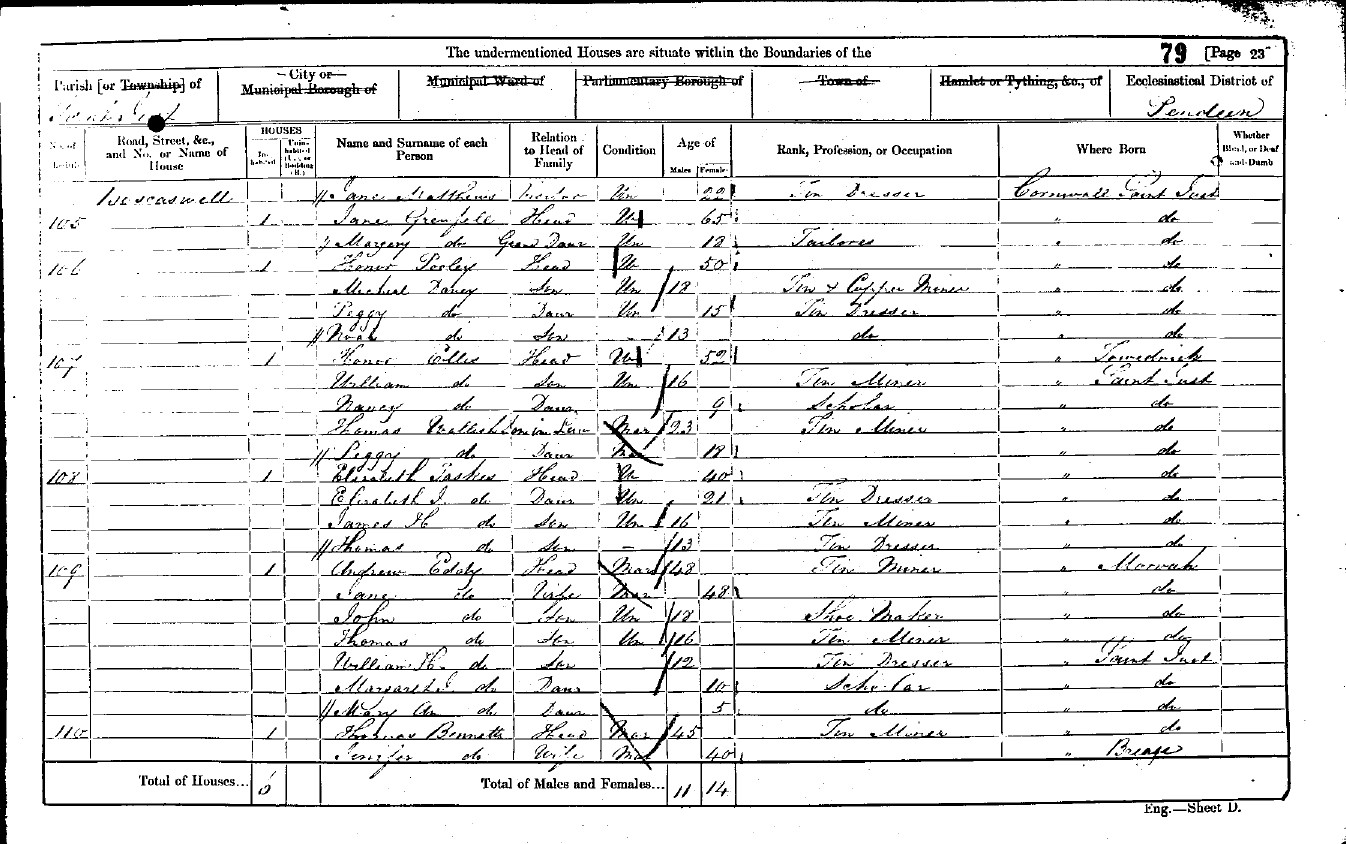 The undermentioned Houses are situate within the Boundaries of the
79 [Page 23
Parish [or Township] of
City or Municipal Borough of
Municipal Ward of
Parliamentary Borough of
Town of
Hamlet or Tything, &c., of
Ecclesiastical District of
Saint Just
Pendeen
No. of Schedule
Road, Street, &c., and No. or Name of House
HOUSES
Inhabited
Uninhabited (U.), or Building (B.)
Name and Surname of each Person
Relation to Head of Family
Condition
Age of
Males
Females
Rank, Profession, or Occupation
Where Born
Whether Blind, or Deaf and-Dumb
Boscaswell Jane Matthews Visitor Un 22 Tin Dresser Cornwall Saint Just
105 1 Jane Grenfell Head W 65 " do
Margery do Grand Daur Un 18 Tailores " do
106 1 Honor Pooley Head W 50 " do
Micheal Davey Son Un 18 Tin & Copper Miner " do
Peggy do Daur Un 15 Tin Dresser " do
Noah do Son - 13 do " do
107 1 Honor Ellis Head W 52 " Towednack
William do Son Un 16 Tin Miner " Saint Just
Nancy do Daur 9 Scholar " do
Thomas Son in Law Mar 23 Tin Miner " do
Peggy do Daur Mar 18 " do
108 1 Elizabeth Taskes Head Un 40 " do
Elizabeth J. do Daur Un 21 Tin Dresser " do
James H do Son Un 16 Tin Miner " do
Thomas do Son - 13 Tin Dresser " do
109 1 Andrew Eddy Head Mar 48 Tin Miner " Morvah
Jane do Wife Mar 48 " do
John do Son Un 18 Shoe Maker " do
Thomas do Son Un 16 Tin Miner " do
William H. do Son 12 Tin Dresser " Saint Just
Margaret J. do Daur 10 Scholar " do
Mary An do Daur 5 do " do
110 1 Thomas Bennetts Head Mar 45 Tin Miner " do
Jenifer do Wife Mar 40 " Breage
Total of Houses... 6
Total of Males and Females... 11 14
Eng.—Sheet D.